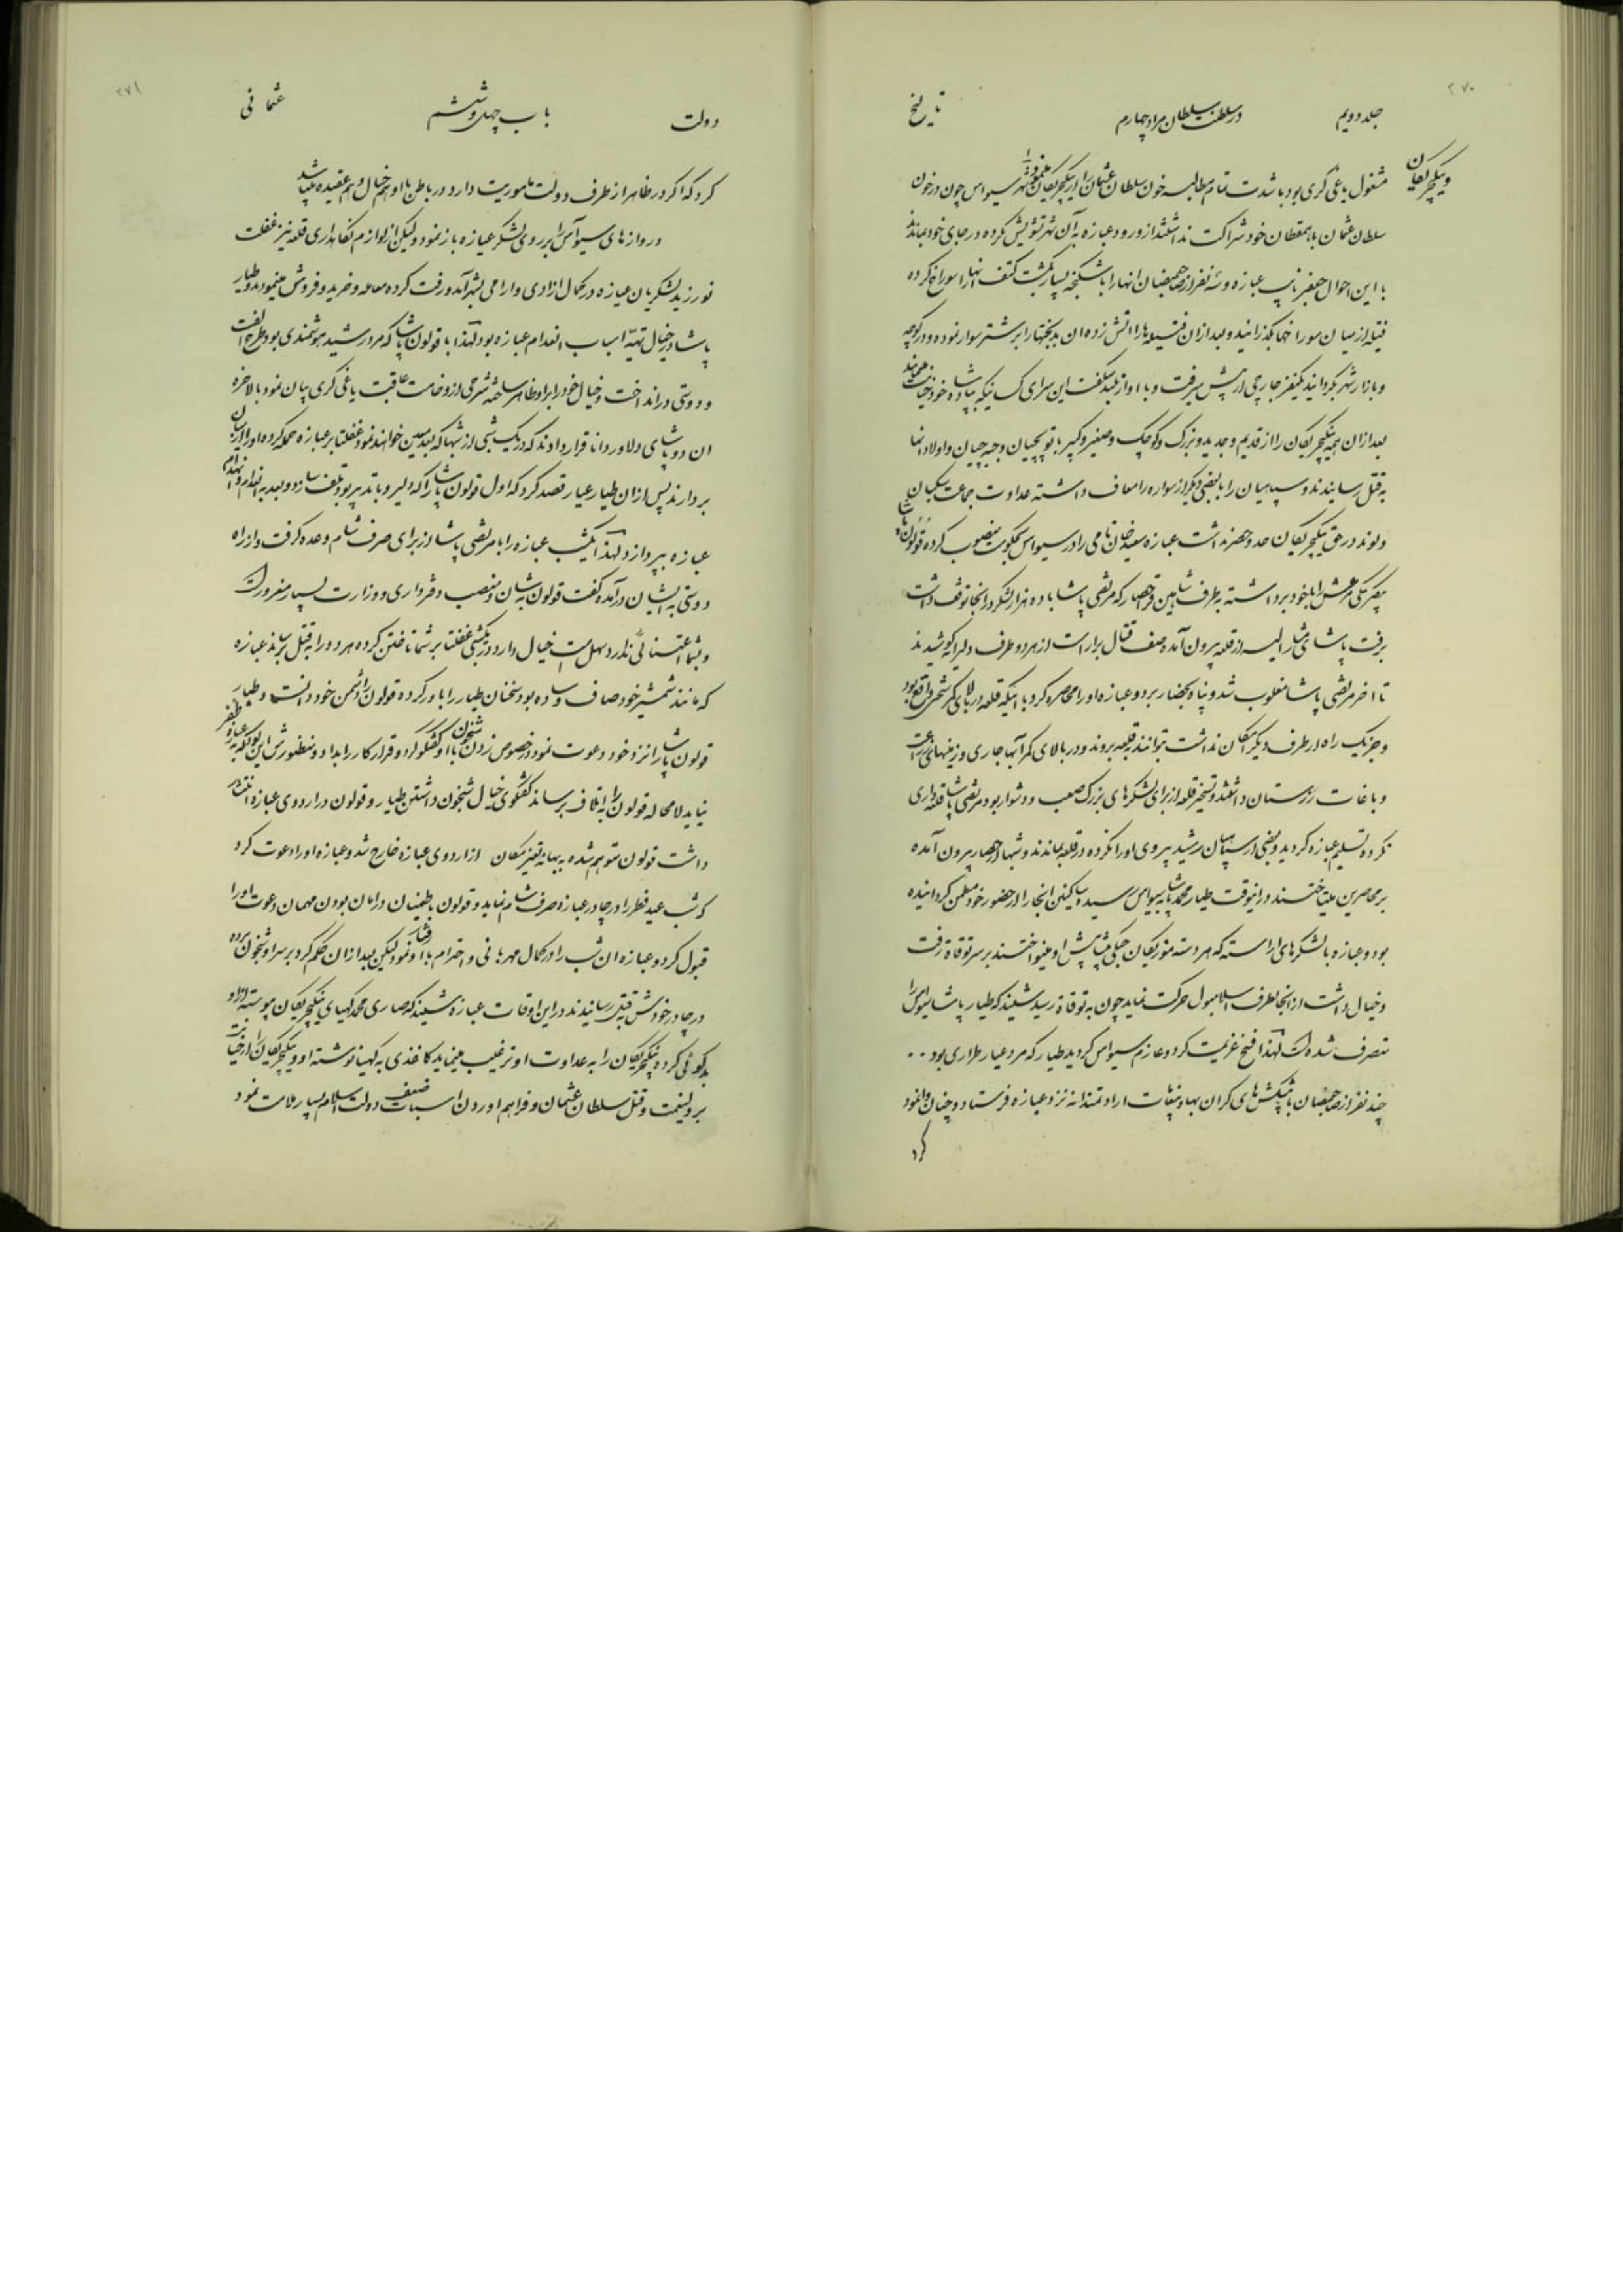 ۲۷۰
جلد دویم
در سلطنت سلطان مراد چهارم
تاریخ
وینکچریکان
مشغول یاغی گری بود با شدت تمام مطالبه خون سلطان عثمان را از ینکچریکان مینمود شهر سیواس چون در خون
سلطان عثمان با همقطان خود شراکت نداشتند از ورود عبازه به آن شهر تشویش نکرده در جای خود بماندند
با این احوال جعفر نایب عبازه و سه نفر از صاحبمنصبان انها را با شکنجه بسیار بکشت کتف انها را سوراخ کرده
فتیله از میان سوراخها بگذرانید و بعد از ان فتیله ها را اتش زده ان بدبختها را بر شتر سوار نموده و در کوچه
و بازار شهر بگردانید یکنفر جارچی از پیش میرفت و با اواز بلند میگفت این سرای کسانیکه بپادشاه خود خیانت نمایند
بعد از ان همه ینکچریکان را از قدیم و جدید و بزرک و کوچک و صغیر و کبیر با توپچیان و جبه چیان و اولاد انها
به قتل رسانیدند و سپاهیان را با بعضی دیگر از سواره را معاف داشته عداوت جماعت سکبان
ولوند در حق ینکچریکان حد و حصر نداشت عبازه سعید خان نامی را در سیواس بحکومت منصوب کرده قولون پاشا
بیکلربیکی مرعش را با خود برداشته به طرف شاهین قراحصار که مرتضی پاشا با ده هزار لشکر در انجا توقف داشت
برفت پاشای مشار الیه از قلعه بیرون آمده صف قتال براراست از هر دو طرف دلیرانه کوشیدند
تا اخر مرتضی پاشا مغلوب شد و پناه بحصار برد و عبازه او را محاصره کرد با اینکه قلعه در بالای کمر سختی واقع بود
و جز یک راه از طرف دیگر امکان نداشت بتوانند به قلعه بروند و در بالای کمر آبها جاری و زمینهای زراعت
و باغات رزستان داشتند و تسخیر قلعه از برای لشکرهای بزرک صعب و دشوار بود مرتضی پاشا قلعه داری
نکرده تسلیم عبازه گردید و بعضی از سپاهیان رشید پیروی او را نکرده در قلعه بماندند و شبها از حصار بیرون آمده
بر محاصرین میتاختند در اینوقت طیار محمد پاشا به سیواس رسید ساکنین انجا را از حضور خود مطمئن گردانیده
بود و عبازه با لشکرهای اراسته که هر دسته موزیکان جنکی پیشاپیش او مینواختند بر سر توقاة رفت
و خیال داشت از انجا بطرف اسلامبول حرکت نماید چون به توقاة رسید شنید که طیار پاشا سیواس را
متصرف شده است لهذا فسخ عزیمت کرد و عازم سیواس گردید طیار که مرد عیار طراری بود ..
چند نفر از صاحبمنصبان با پیشکش های گران بها و پیغامات ارادتمندانه نزد عبازه فرستاد و چنان وانمود
کرد
۲۷۱
دولت
باب چهل و ششم
عثمانی
کرد که اگر در ظاهر از طرف دولت ماموریت دارد در باطن با او هم خیال و هم عقیده میباشد
دروازهای سیواس را بر روی لشکر عبازه باز نمود ولیکن از لوازم نگاهداری قلعه نیز غفلت
نورزید لشکریان عبازه در کمال ازادی و ارامی بشهر آمد و رفت کرده معامله و خرید و فروش مینمودند و طیار
پاشا در خیال تهیّه اسباب انعدام عبازه بود لهذا با قولون پاشا که مرد رشید هوشمندی بود طرح الفت
و دوستی در انداخت و خیال خود را بر او ظاهر ساخته شرحی از وخامت عاقبت یاغی گری بیان نمود بالاخره
ان دو پاشای دلاور دانا قرار دادند که در یک شبی از شبها که بعد معین خواهند نمود غفلتا بر عبازه حمله کرده او را از میان
بردارند پس از ان طیار عیار قصد کرد که اول قولون پاشا را که دلیر و با تدبیر بود تلف سازد و بعد به انعدام و انهدام
عبازه بپردازد لهذا یکشب عبازه را با مرتضی پاشا از برای صرف شام وعده گرفت و از راه
دوستی به ایشان درآمده گفت قولون به شان و منصب دفترداری و وزارت بسیار مغرور است
و بشما اعتنائی ندارد سهل است خیال دارد در یکشبی غفلتا بر شما تاختن کرده هر دو را به قتل برساند عبازه
که مانند شمشیر خود صاف و ساده بود سخنان طیار را باور کرده قولون را دشمن خود دانست و طیار
قولون پاشا را نزد خود دعوت نمود در خصوص زدن شبخون با او گفتگو کرد و قرار کار را بداد و منظورش این بود که به عبازه ظفر
نیابد لامحاله قولون را به اتلاف برساند گفتگوی خیال شبخون داشتن طیار و قولون در اردوی عبازه انتشار
داشت قولون متوهم شده به بهانه تغییر مکان از اردوی عبازه خارج شد و عبازه او را دعوت کرد
که شب عید فطر را در چادر عبازه صرف شام نماید و قولون باطمینان در امان بودن مهمان دعوت او را
قبول کرد و عبازه ان شب را در کمال مهربانی و احترام با او رفتار نمود لیکن بعد از ان حکم کرد بر سر او شبخون برده
در چادر خودش بقتل رسانیدند در این اوقات عبازه شنید که صاری محمد کهیای ینکچریکان پیوسته از او
بدگوئی کرده ینکچریکان را به عداوت او ترغیب مینماید کاغذی به کهیا نوشته او و ینکچریکان را از خیانت
بر ولینعمت و قتل سلطان عثمان و فراهم اوردن اسباب ضعف دولت اسلام بسیار ملامت نمود